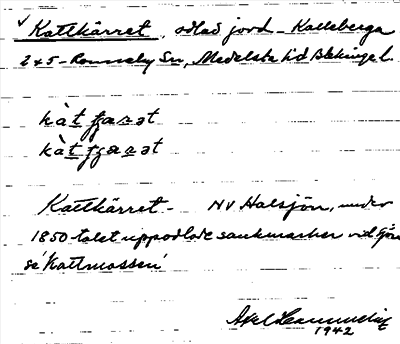 √ Kattkärret, odlad jord - Kalleberga
2 & 5 - Ronneby Sn, Medelsta hd Blekinge l.
kàt ɟarət
kàt ɟɟarət
Kattkärret - NV Halsjön, under
1850-talet uppodlade sankmarker vid
se 'Kattmossen'
Axel
1942